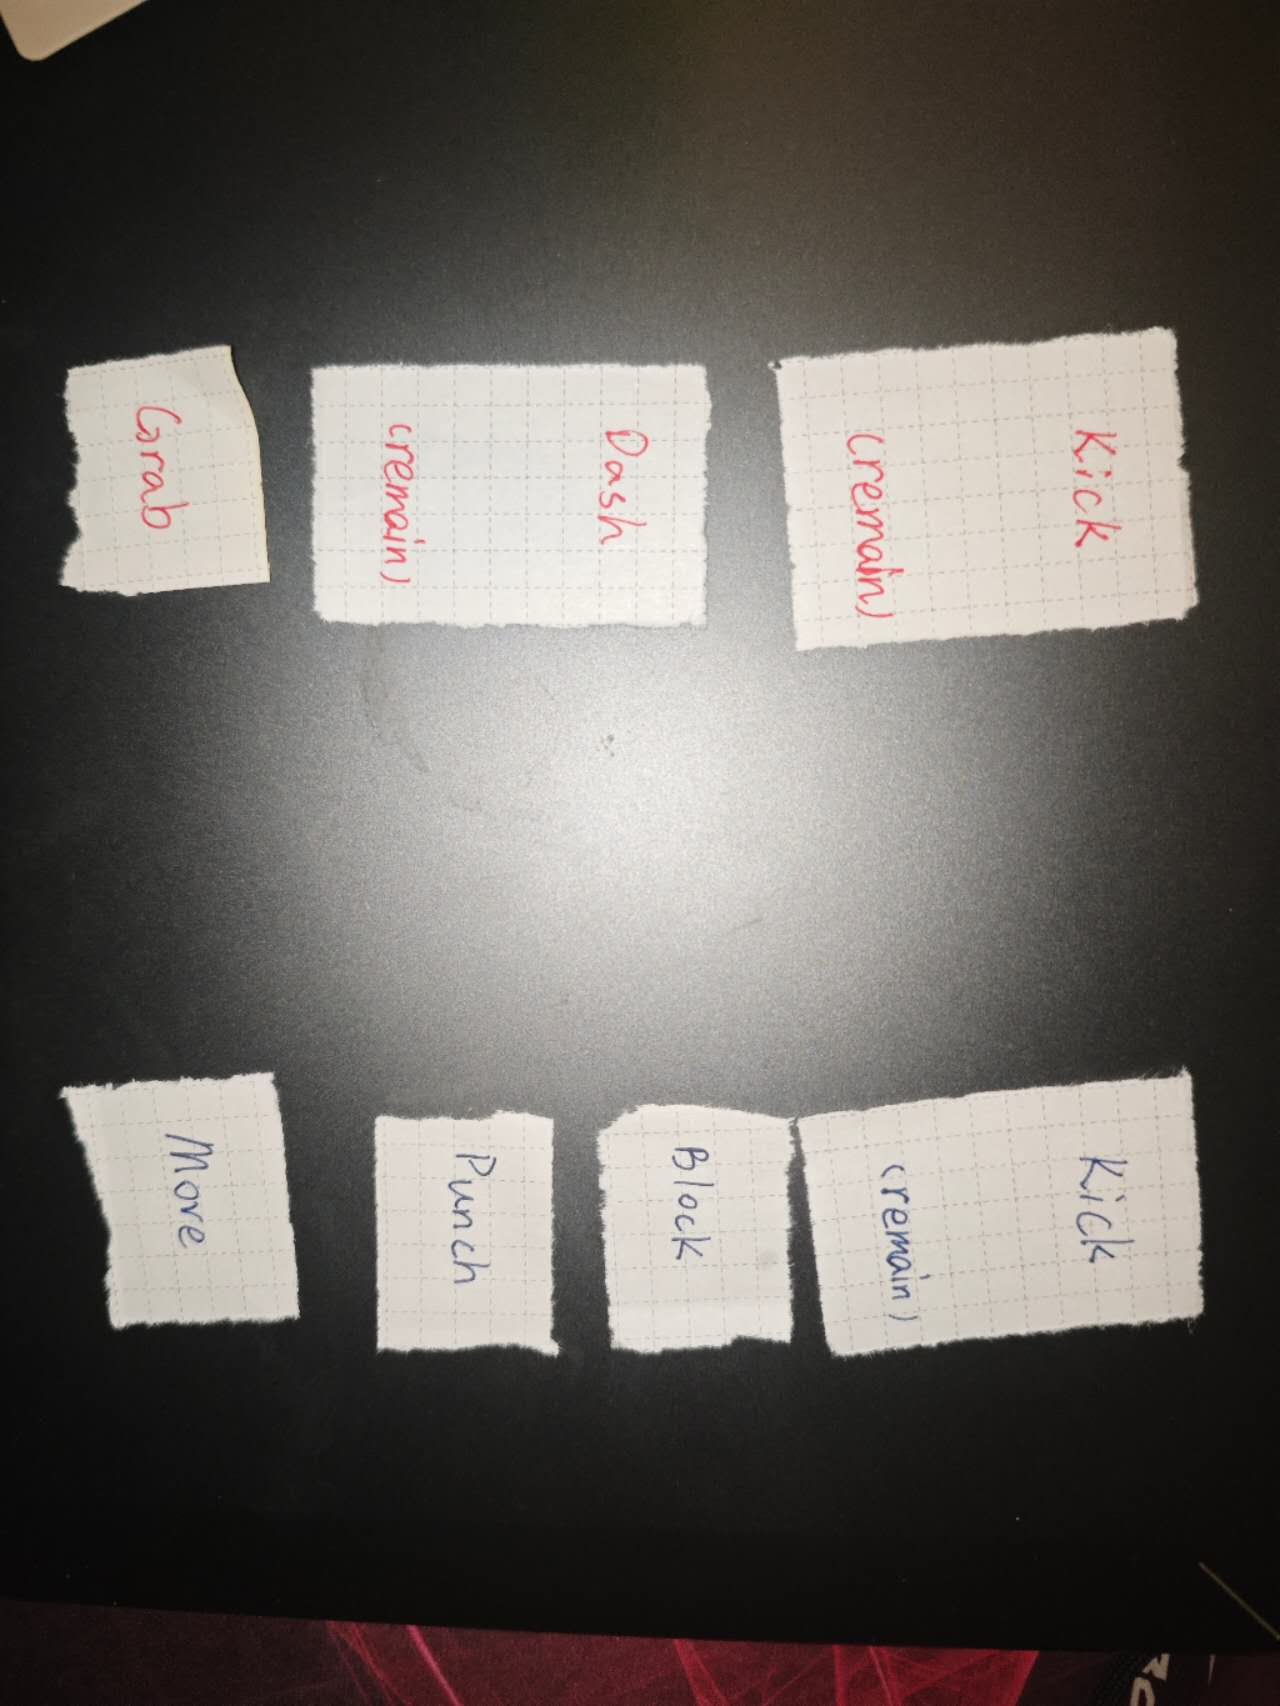 Kick
(remain)
Dash
(remain)
Grab
Kick
(remain)
Block
Punch
Move